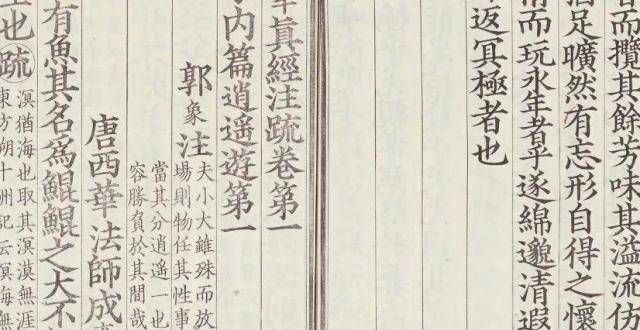 者而攬其餘芳味其溢流彷
沾足曠然有忘形自得之懷
情而玩永年者乎遂綿邈清遐
返冥極者也
真經注疏卷第一
内篇逍遥遊第一
郭象注
夫小大雖殊而放
場則物任其性事
當其分逍遥一也
容勝負於其間哉
唐西華法師成
有魚其名爲鯤鯤之大不
也疏
溟猶海也取其溟漠無涯
東方朔十洲記云溟海無